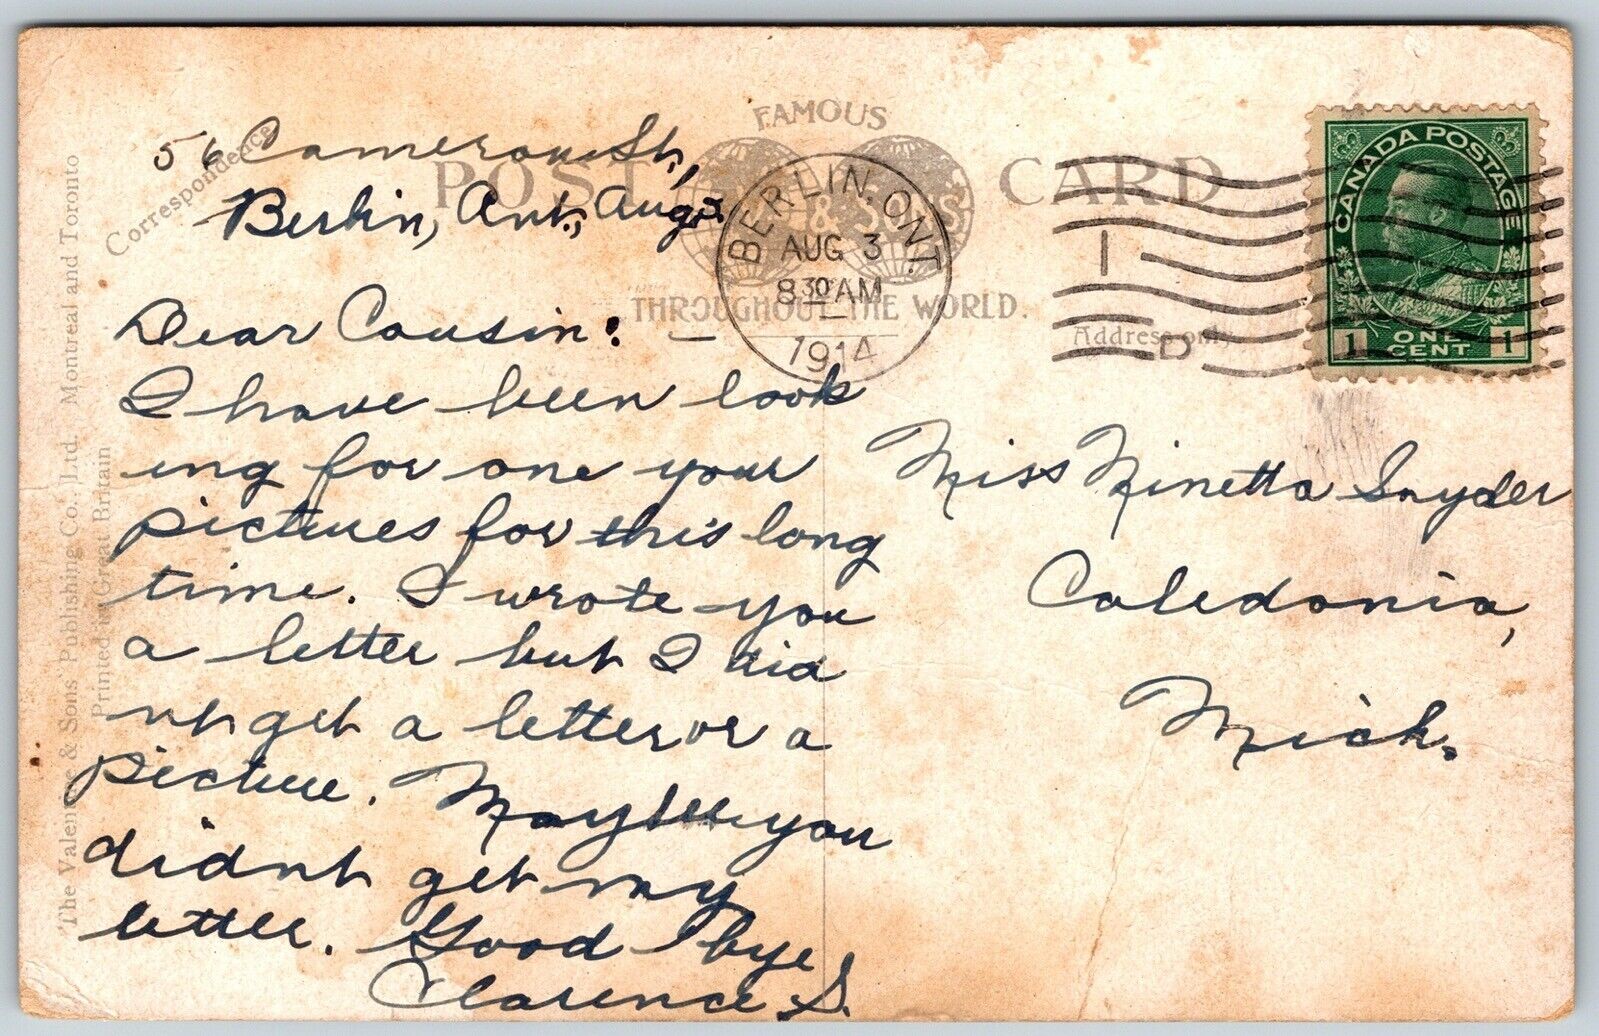 56 Cameron St.,
Berlin, Ont., Aug
Dear Cousin: –
I have been look
ing for one your
pictures for this long
time. I wrote you
a letter but I did
nt get a letter or a
picture. Maybee you
didnt get my
letter. Good bye
Clarence S.
Correspondence
The Valentine & Sons' Publishing Co., Ltd. Montreal and Toronto
Printed in Great Britain
POST CARD
FAMOUS
& SONS
THROUGHOUT THE WORLD.
BERLIN, ONT.
AUG 3
8 30 AM
1914
I
D
Address only
CANADA POSTAGE
1 ONE CENT 1
Miss Minetta Snyder
Caledonia,
Mich.